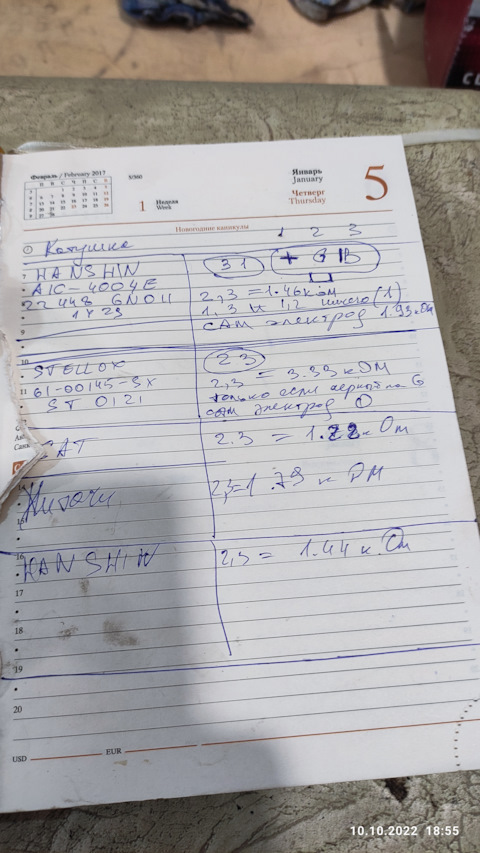 Февраль / February 2017
5/360
1
Неделя
Week
Январь
January
Четверг
Thursday
5
Новогодние каникулы
1 2 3
Катушка
31
+ G IB
HANSHIN
AIC-4004E
22448 6N011
1 x 23
2,3 = 1.46 к ом
1,3 и 1,2 ничего (1)
сам электрод 1.93 к Ом
9
10
STELLOX
61-00145-SX
ST 0121
23
2,3 = 3.33 к Ом
только если черный на G
сам электрод 1
11
2.3 = 1.22 к Ом
Хитачи
2,3=1.79 к Ом
15
16
HANSHIN
2,3 = 1.44 к. Ом
17
18
19
20
USD
EUR
10.10.2022 18:55